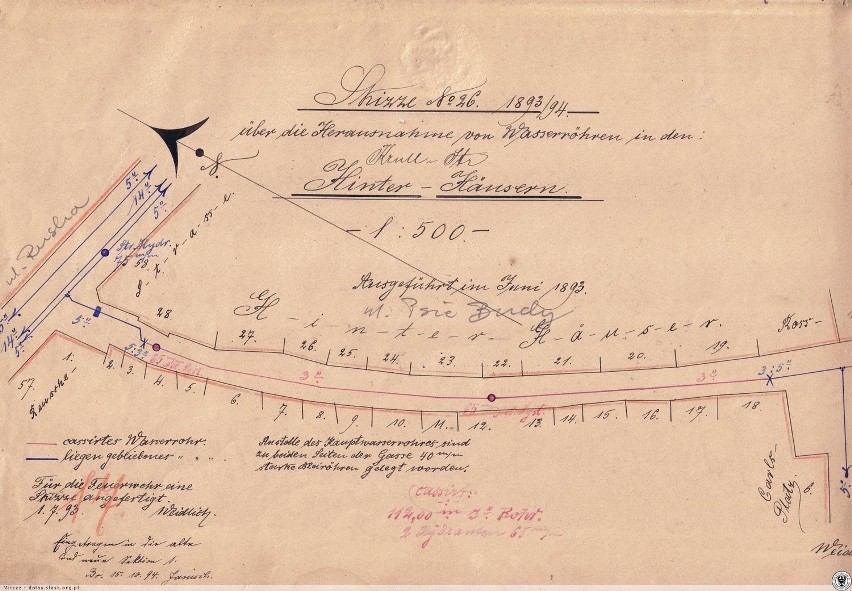 Skizze No 26. 1893/94.
über die Herausnahme von Wasserröhren in den:
Krull-Str
Hinter-Häusern.
-1:500-
Ausgeführt im Juni 1893.
ul. Psie Budy
N.
ul. Ruska
5"
14"
5"
Str. Hydr.
75 m/m
58.
S-t-r-a-ss-e.
H-i-n-t-e-r-H-ä-u-s-e-r.
28
27.
26.
25.
24.
23.
22.
21.
20.
19.
Ross-
5"
14"
5"
5"
5:3"
3"
3"
3:5"
57.
1.
2.
3.
4.
5.
6.
7.
8.
9.
10.
11.
12.
13.
14.
15.
16.
17.
18.
Reusche-
Carls-
Platz
5"
cassirtes Wasserrohr.
liegen gebliebenes " " .
Anstelle des Hauptwasserrohres, sind
zu beiden Seiten der Gasse 40 m/m
starke Bleiröhren gelegt worden.
Für die Feuerwehr eine
Skizze angefertigt
1.7.93. Weidlich.
cassirt:
112,00 m 3" Rohr.
2 Hydranten 65 m/m
Eingetragen in die alte
und neue Sektion 1.
Br. 15.10.94. Janisch.
dolny.slask.org.pl